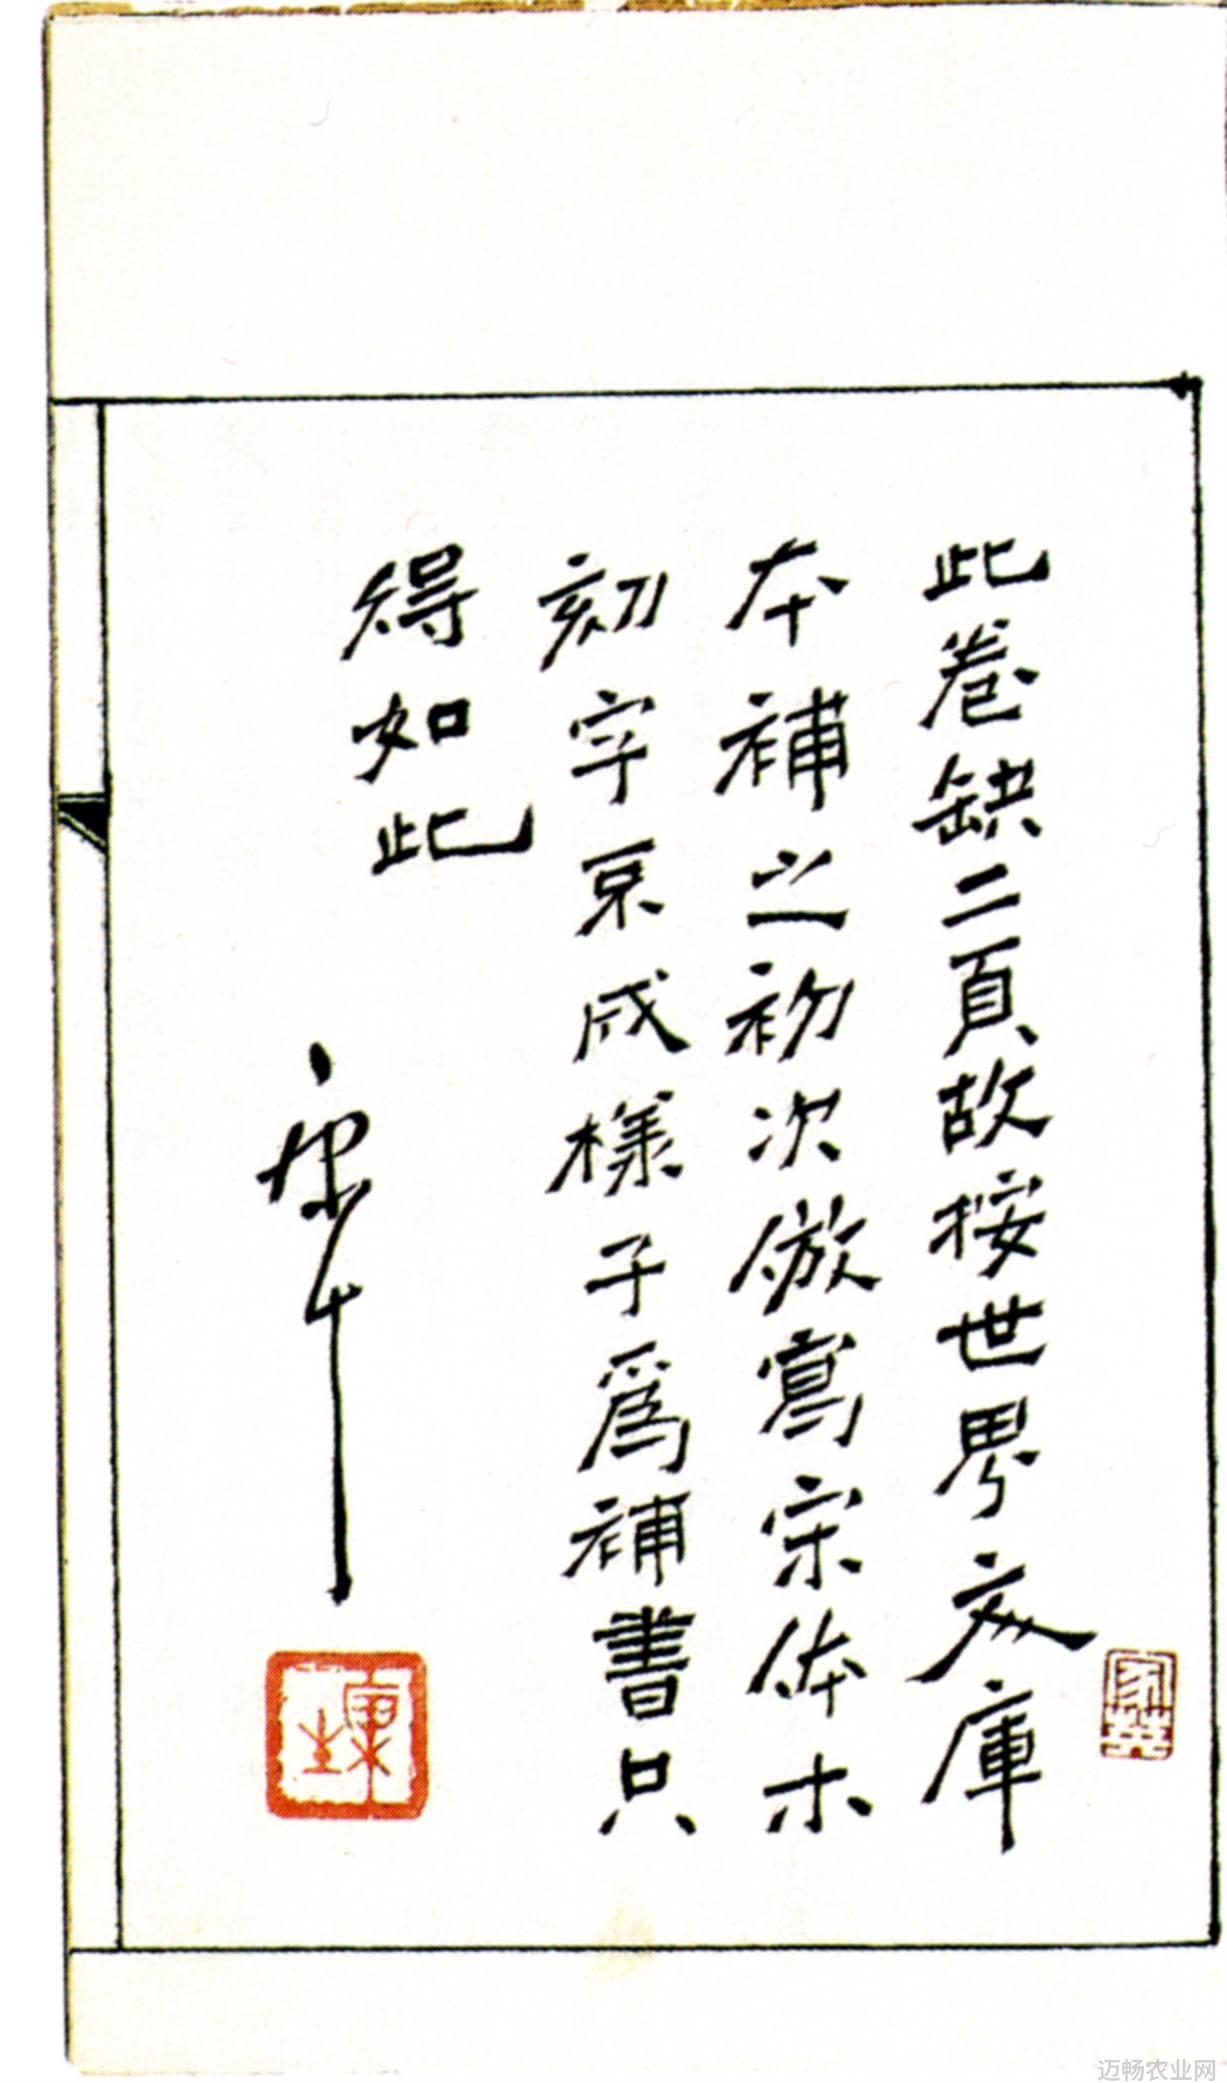 此卷缺二頁故按世界文庫
本補之初次倣寫宋体木
刻字成樣子爲補書只
得如此
康生
康生
迈畅农业网